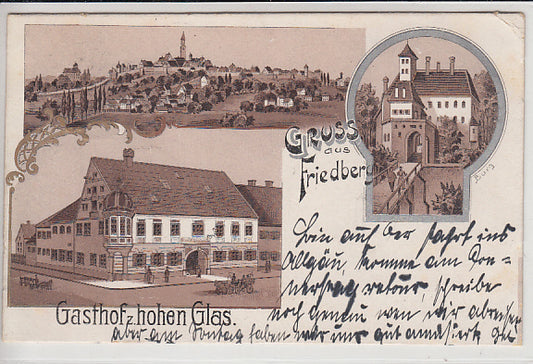 Gruss
aus
Friedberg
Burg
Gasthof z. hohen Glas.
Bin auf der Fahrt ins
Allgäu, komme am Don-
nerstag retour, schreibe
noch genau wen wir abreisen
aber am Sontag haben wir uns gut amüsiert